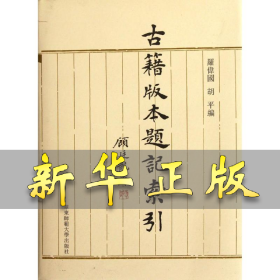 羅偉國 胡平編
古籍版本題記索引
顧
新华正版
東師範大學出版社